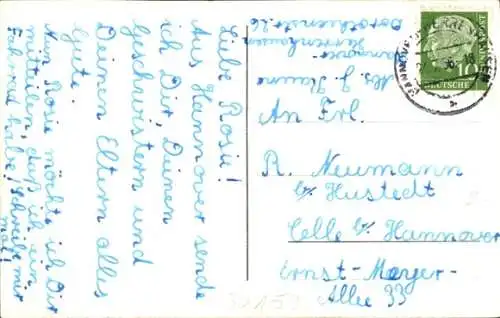 Liebe Rosie!
Aus Hannover sende
ich Dir, Deinen
Geschwistern und
Deinen Eltern alles
Gute.
Nun Rosie möchte ich Dir
mitteilen, daß ich ein
Fahrrad habe! Schreibe mir
mal!
Abs. J.
Hannover-
Herrenhausen
Dorotheenstr. 26
An Frl.
R. Neumann
b/ Hustedt
Celle b/ Hannover
Ernst-Meyer-
Allee 33
HANNOVER
10
DEUTSCHE
BUNDESPOST